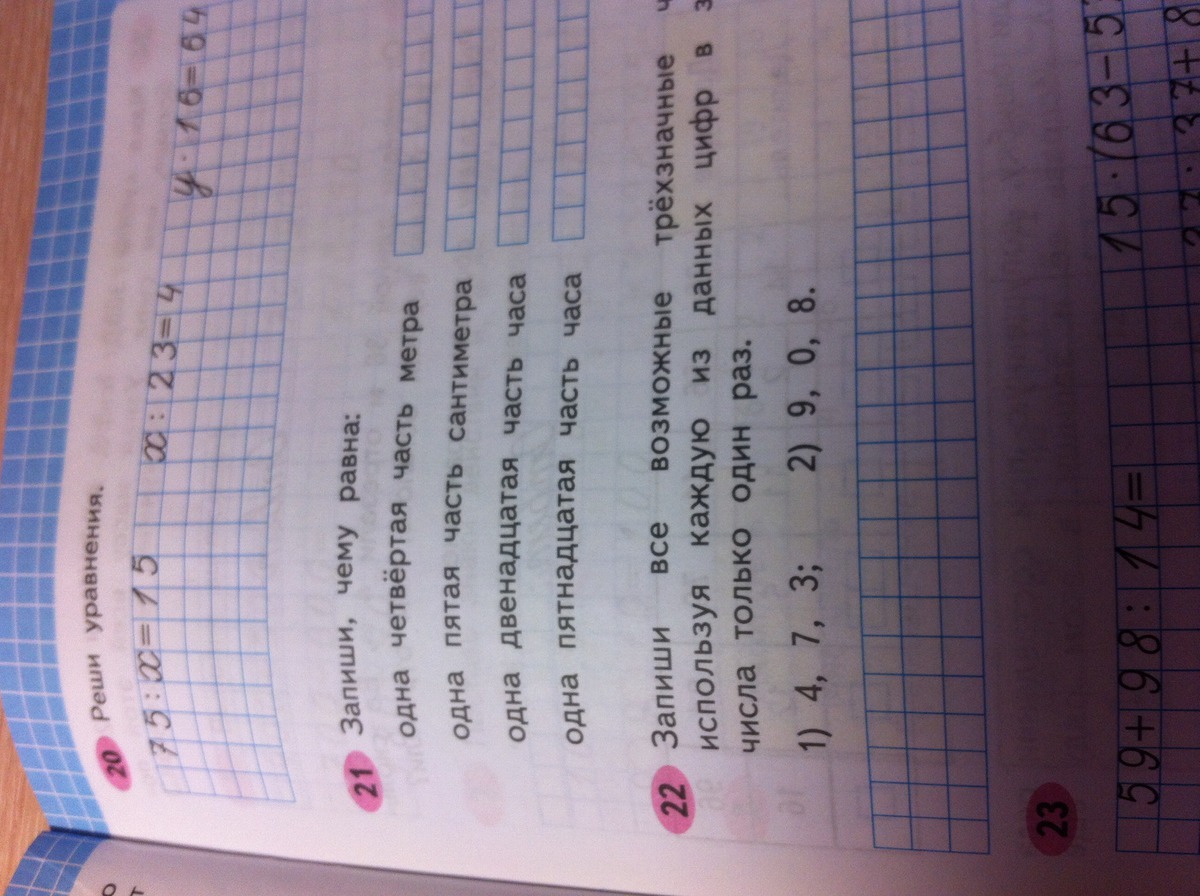 20 Реши уравнения.
75:x=15 x:23=4 y·16=64
21 Запиши, чему равна:
одна четвёртая часть метра
одна пятая часть сантиметра
одна двенадцатая часть часа
одна пятнадцатая часть часа
22 Запиши все возможные трёхзначные
используя каждую из данных цифр в
числа только один раз.
1) 4, 7, 3; 2) 9, 0, 8.
23
59+98:14= 15·(63-5
37+8